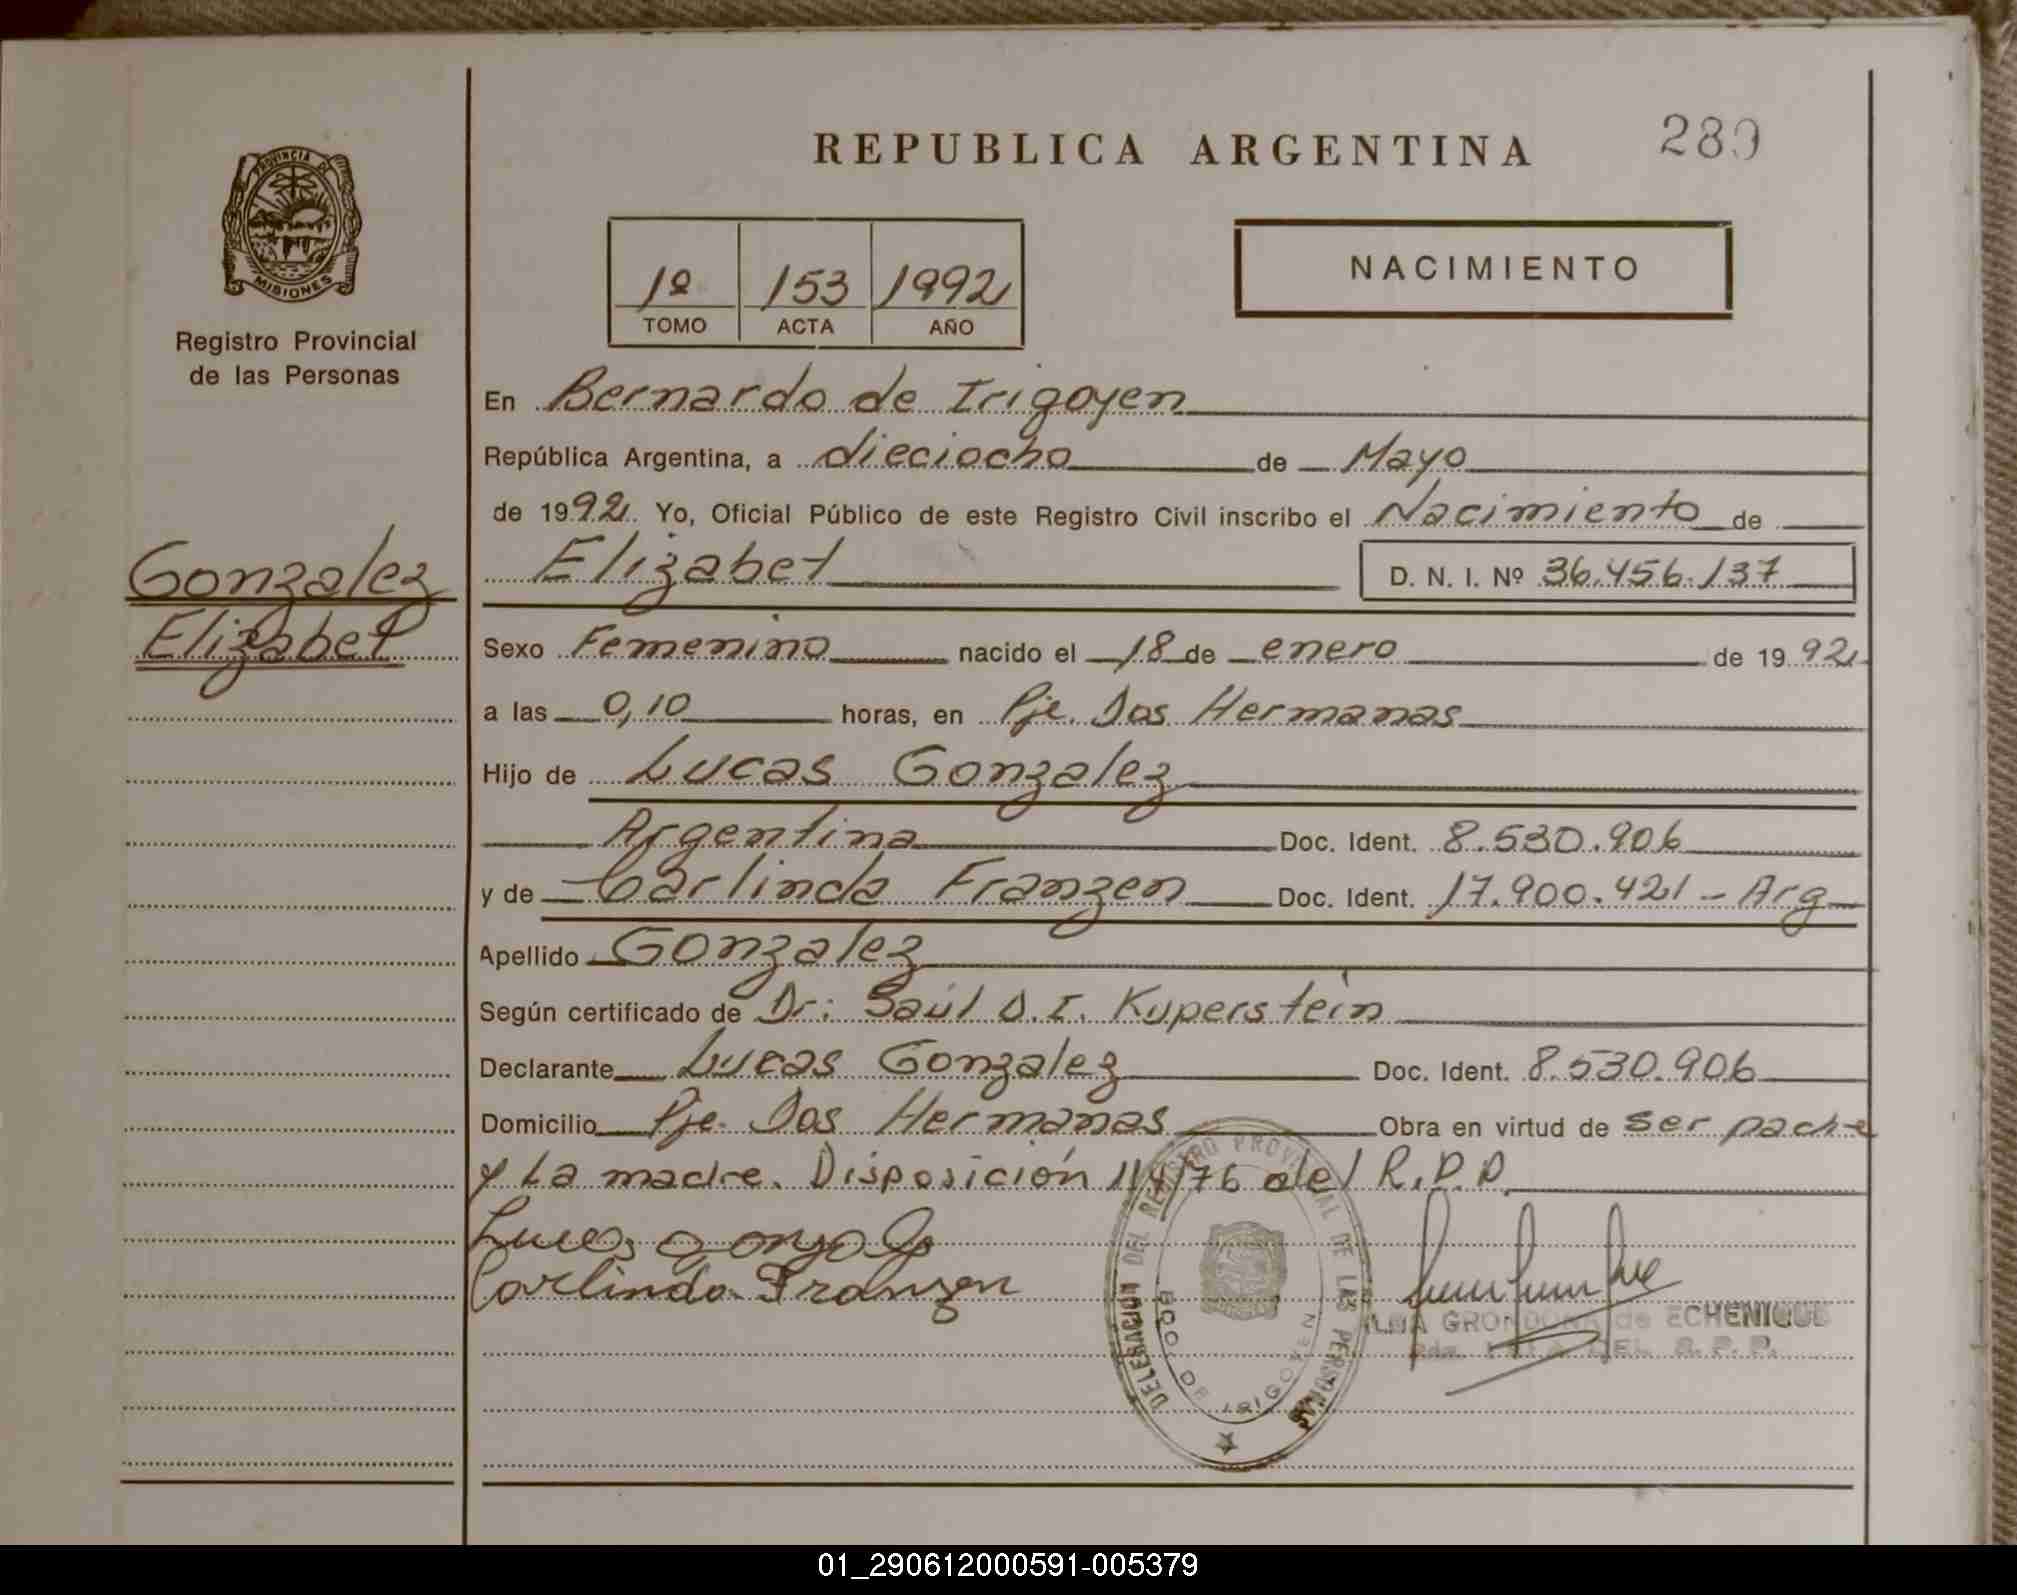 REPUBLICA ARGENTINA
289
PROVINCIA DE
MISIONES
Registro Provincial
de las Personas
1º 153 1992
TOMO ACTA AÑO
NACIMIENTO
En Bernardo de Irigoyen
República Argentina, a dieciocho de Mayo
de 1992 Yo, Oficial Público de este Registro Civil inscribo el Nacimiento de
Gonzalez
Elizabet
Elizabet D. N. I. Nº 36.456.137
Sexo Femenino nacido el 18 de enero de 1992
a las 0,10 horas, en Pje. Dos Hermanas
Hijo de Lucas Gonzalez
Argentina Doc. Ident. 8.530.906
y de Carlinda Franzen Doc. Ident. 17.900.421 - Arg
Apellido Gonzalez
Según certificado de Dr: Saúl D. I. Kuperstein
Declarante Lucas Gonzalez Doc. Ident. 8.530.906
Domicilio Pje. Dos Hermanas Obra en virtud de ser padre
y La madre. Disposición 114/76 del R.P.P.
Lucas gonzalez
Carlinda Franzen
DELEGACION DEL REGISTRO PROVINCIAL DE LAS PERSONAS
BDO DE IRIGOYEN
GRONDONA de ECHENIQUE
DEL R. P. P.
01_290612000591-005379